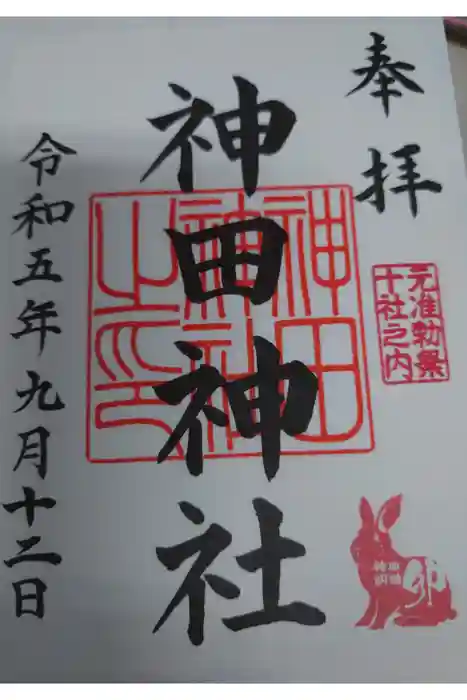 奉拝
神田神社
令和五年九月十二日
神田神社之印
元准勅祭
十社之内
卯